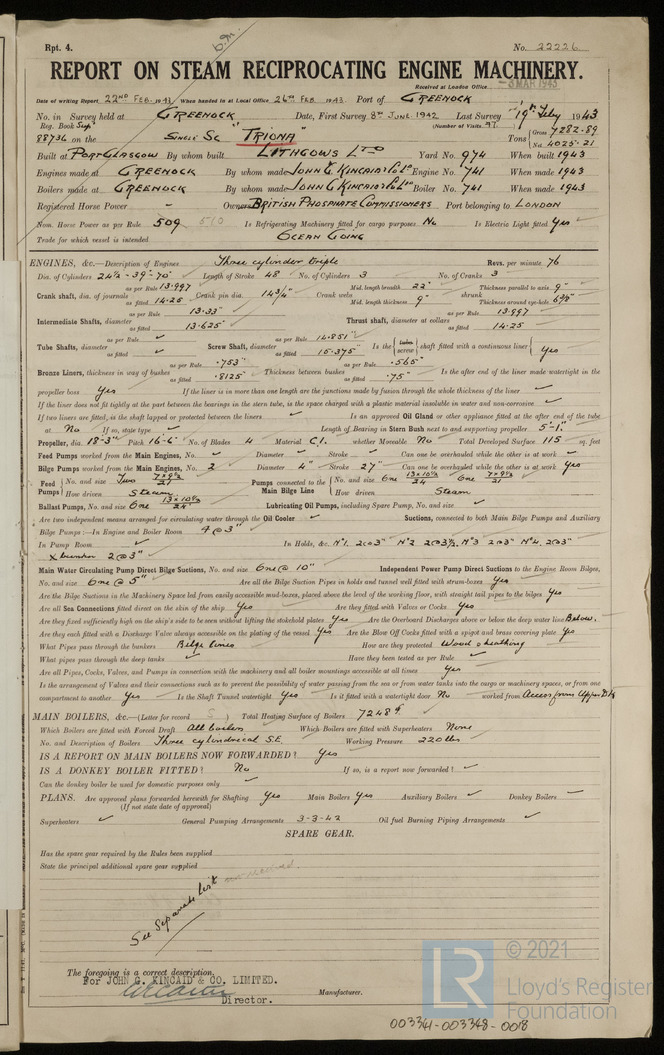 Rpt. 4. No. 22226
REPORT ON STEAM RECIPROCATING ENGINE MACHINERY.
Received at London Office -3 MAR 1943
Date of writing Report 22ND FEB. 1943 When handed in at Local Office 24th FEB 1943. Port of GREENOCK
No. in Survey held at GREENOCK Date, First Survey 8th JUNE 1942 Last Survey 19th Feby 1943
Reg. Book Sup (Number of Visits 97)
88736 on the SINGLE SC "TRIONA" Tons { Gross 7282.89 Net 4025.21
Built at PORT GLASGOW By whom built LITHGOWS LTD Yard No. 974 When built 1943
Engines made at GREENOCK By whom made JOHN G. KINCAID & Co Ltd Engine No. 741 When made 1943
Boilers made at GREENOCK By whom made JOHN G KINCAID & Co Ltd Boiler No. 741 When made 1943
Registered Horse Power - Owners BRITISH PHOSPHATE COMMISSIONERS Port belonging to LONDON
Nom. Horse Power as per Rule 509 510 Is Refrigerating Machinery fitted for cargo purposes No Is Electric Light fitted Yes
Trade for which vessel is intended OCEAN GOING
ENGINES, &c.—Description of Engines Three cylinder triple Revs. per minute 76
Dia. of Cylinders 24½ - 39 - 70" Length of Stroke 48 No. of Cylinders 3 No. of Cranks 3
Crank shaft, dia. of journals as per Rule 13.997 as fitted 14.25 Crank pin dia. 14¾" Crank webs Mid. length breadth 22" Mid. length thickness 9" shrunk Thickness parallel to axis 9" Thickness around eye-hole
Intermediate Shafts, diameter as per Rule 13.33" as fitted 13.625" Thrust shaft, diameter at collars as per Rule 13.997 as fitted 14.25
Tube Shafts, diameter as per Rule as fitted Screw Shaft, diameter as per Rule 14.851" as fitted 15.375" Is the { tube screw } shaft fitted with a continuous liner { Yes
Bronze Liners, thickness in way of bushes as per Rule .753" as fitted .8125" Thickness between bushes as per Rule .565" as fitted .75" Is the after end of the liner made watertight in the
propeller boss Yes If the liner is in more than one length are the junctions made by fusion through the whole thickness of the liner
If the liner does not fit tightly at the part between the bearings in the stern tube, is the space charged with a plastic material insoluble in water and non-corrosive
If two liners are fitted, is the shaft lapped or protected between the liners Is an approved Oil Gland or other appliance fitted at the after end of the tube
at No If so, state type Length of Bearing in Stern Bush next to and supporting propeller 5'-1"
Propeller, dia. 18'-3" Pitch 16'-6" No. of Blades 4 Material C.I. whether Moveable No Total Developed Surface 115 sq. feet
Feed Pumps worked from the Main Engines, No. Diameter Stroke Can one be overhauled while the other is at work
Bilge Pumps worked from the Main Engines, No. 2 Diameter 4" Stroke 27" Can one be overhauled while the other is at work Yes
Feed Pumps { No. and size Two 7 x 9½ / 21 How driven Steam Pumps connected to the Main Bilge Line { No. and size One 13 x 10½ / 24 One 7 x 9½ / 21 How driven Steam
Ballast Pumps, No. and size One 13 x 10½ / 24 Lubricating Oil Pumps, including Spare Pump, No. and size
Are two independent means arranged for circulating water through the Oil Cooler Suctions, connected to both Main Bilge Pumps and Auxiliary
Bilge Pumps:—In Engine and Boiler Room 4 @ 3"
In Pump Room In Holds, &c. No 1. 2 @ 3" No 2 2 @ 3½" No 3 2 @ 3" No 4. 2 @ 3"
X bunker 2 @ 3"
Main Water Circulating Pump Direct Bilge Suctions, No. and size One @ 10" Independent Power Pump Direct Suctions to the Engine Room Bilges,
No. and size One @ 5" Are all the Bilge Suction Pipes in holds and tunnel well fitted with strum-boxes Yes
Are the Bilge Suctions in the Machinery Space led from easily accessible mud-boxes, placed above the level of the working floor, with straight tail pipes to the bilges Yes
Are all Sea Connections fitted direct on the skin of the ship Yes Are they fitted with Valves or Cocks Yes
Are they fixed sufficiently high on the ship's side to be seen without lifting the stokehold plates Yes Are the Overboard Discharges above or below the deep water line Below.
Are they each fitted with a Discharge Valve always accessible on the plating of the vessel Yes Are the Blow Off Cocks fitted with a spigot and brass covering plate Yes
What Pipes pass through the bunkers Bilge lines How are they protected Wood sheathing
What pipes pass through the deep tanks Have they been tested as per Rule
Are all Pipes, Cocks, Valves, and Pumps in connection with the machinery and all boiler mountings accessible at all times Yes
Is the arrangement of Valves and their connections such as to prevent the possibility of water passing from the sea or from water tanks into the cargo or machinery spaces, or from one
compartment to another Yes Is the Shaft Tunnel watertight Yes Is it fitted with a watertight door No worked from Access from Upper Dk
MAIN BOILERS, &c.—(Letter for record S) Total Heating Surface of Boilers 7248 ft
Which Boilers are fitted with Forced Draft All boilers Which Boilers are fitted with Superheaters None
No. and Description of Boilers Three cylindrical S.E. Working Pressure 220 lbs
IS A REPORT ON MAIN BOILERS NOW FORWARDED? Yes
IS A DONKEY BOILER FITTED? No If so, is a report now forwarded?
Can the donkey boiler be used for domestic purposes only
PLANS. Are approved plans forwarded herewith for Shafting Yes Main Boilers Yes Auxiliary Boilers Donkey Boilers
(If not state date of approval)
Superheaters General Pumping Arrangements 3-3-42 Oil fuel Burning Piping Arrangements
SPARE GEAR.
Has the spare gear required by the Rules been supplied
State the principal additional spare gear supplied
See Separate list not received.
The foregoing is a correct description,
For JOHN G. KINCAID & CO. LIMITED.
Director. Manufacturer.
003341-003348-0018
LR © 2021
Lloyd's Register
Foundation